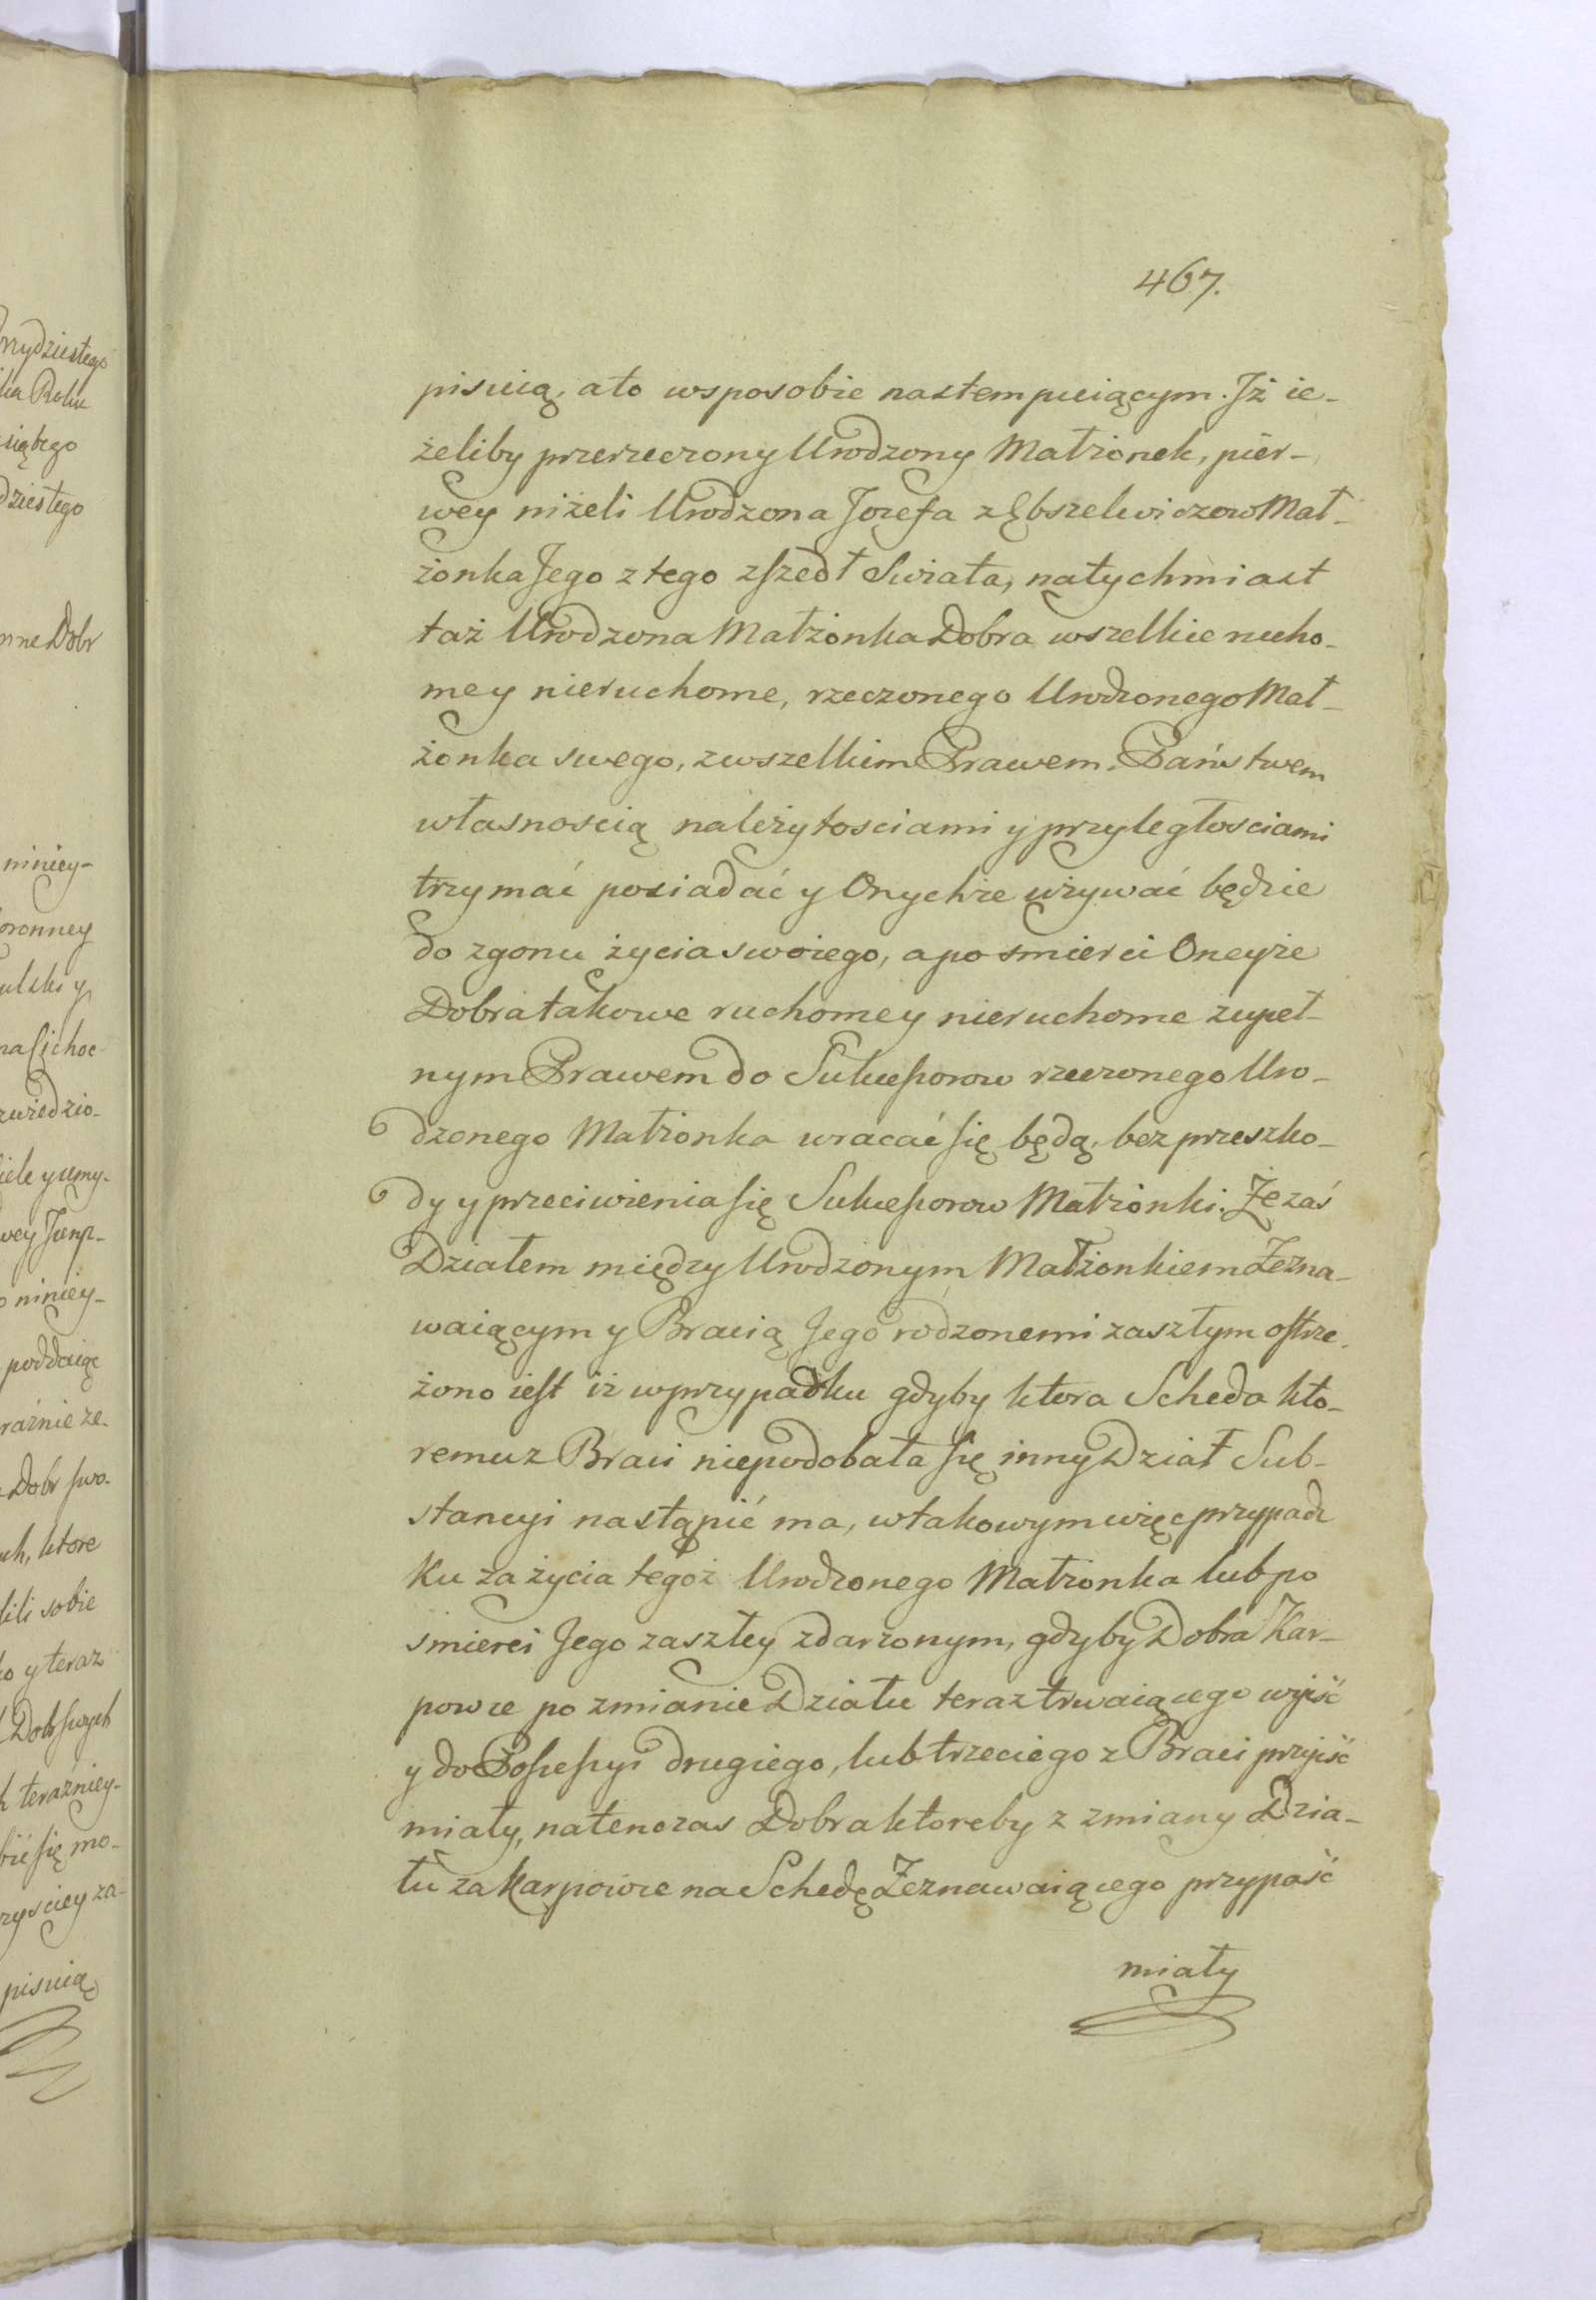 467.
pisuią, ato wsposobie nastempuiącym. Jż ie-
żeliby przerzeczony Urodzony Małżonek, pier-
wey niżeli Urodzona Jozefa z Małżonka Jego z tego zszedł Swiata, natychmiast
taż Urodzona Małżonka Dobra wszelkie rucho-
me y nieruchome, rzeczonego Urodzonego Mał-
żonka swego, zwszelkim Prawem, Państwem
własnoscią należytosciami y przyległosciami
trzymać posiadać y Onychże używać będzie
do zgonu życia swoiego, apo smierci Oneyże
Dobra takowe ruchome y nieruchome zupeł-
nym Prawem do Sukcessorow rzeczonego Uro-
dzonego Małżonka wracać się będą, bez przeszko-
dy y przeciwienia się Sukcessorow Małżonki. Że zaś
Działem między Urodzonym Małżonkiem Zezna-
waiącym y Bracią Jego rodzonemi zaszłym ostrze-
żono iest iż wprzypadku gdyby ktora Scheda kto-
remu z Braci niepodobała się inny Dział Sub-
stancyi nastąpić ma, wtakowym więc przypad
ku za życia tegoż Urodzonego Małżonka lub po
smierci Jego zaszłey zdarzonym, gdyby Dobra Kar-
powce po zmianie Działu teraz trwaiącego wyiść
y do Possessyi drugiego, lub trzeciego z Braci przyiść
miały, natenczas Dobra ktoreby z zmiany Dzia-
łu za Karpowce na Schedę Zeznawaiącego przypaść
miały